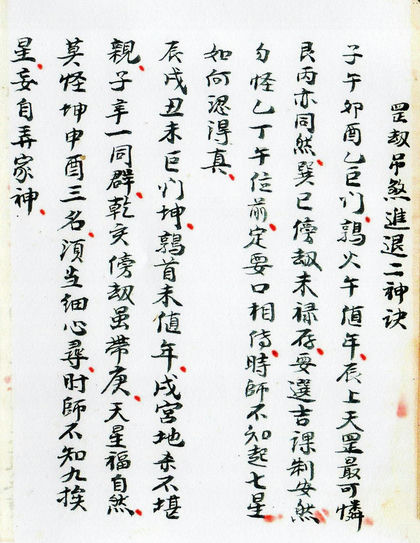 罡劫吊煞進退二神訣
子午卯酉乙巨门鶉火午值年辰上天罡最可憐
艮丙亦同然巽巳傍劫未祿存要選吉課制安然
勿怪乙丁午位前定要口相传時師不知起七星
如何認得真
辰戌丑未巨门坤鶉首未值年戌宮地煞不堪
親子辛一同群乾亥傍劫虽帶庚天星福自然
莫怪坤申酉三名須当细心尋时師不知九挨
星妄自弄家神